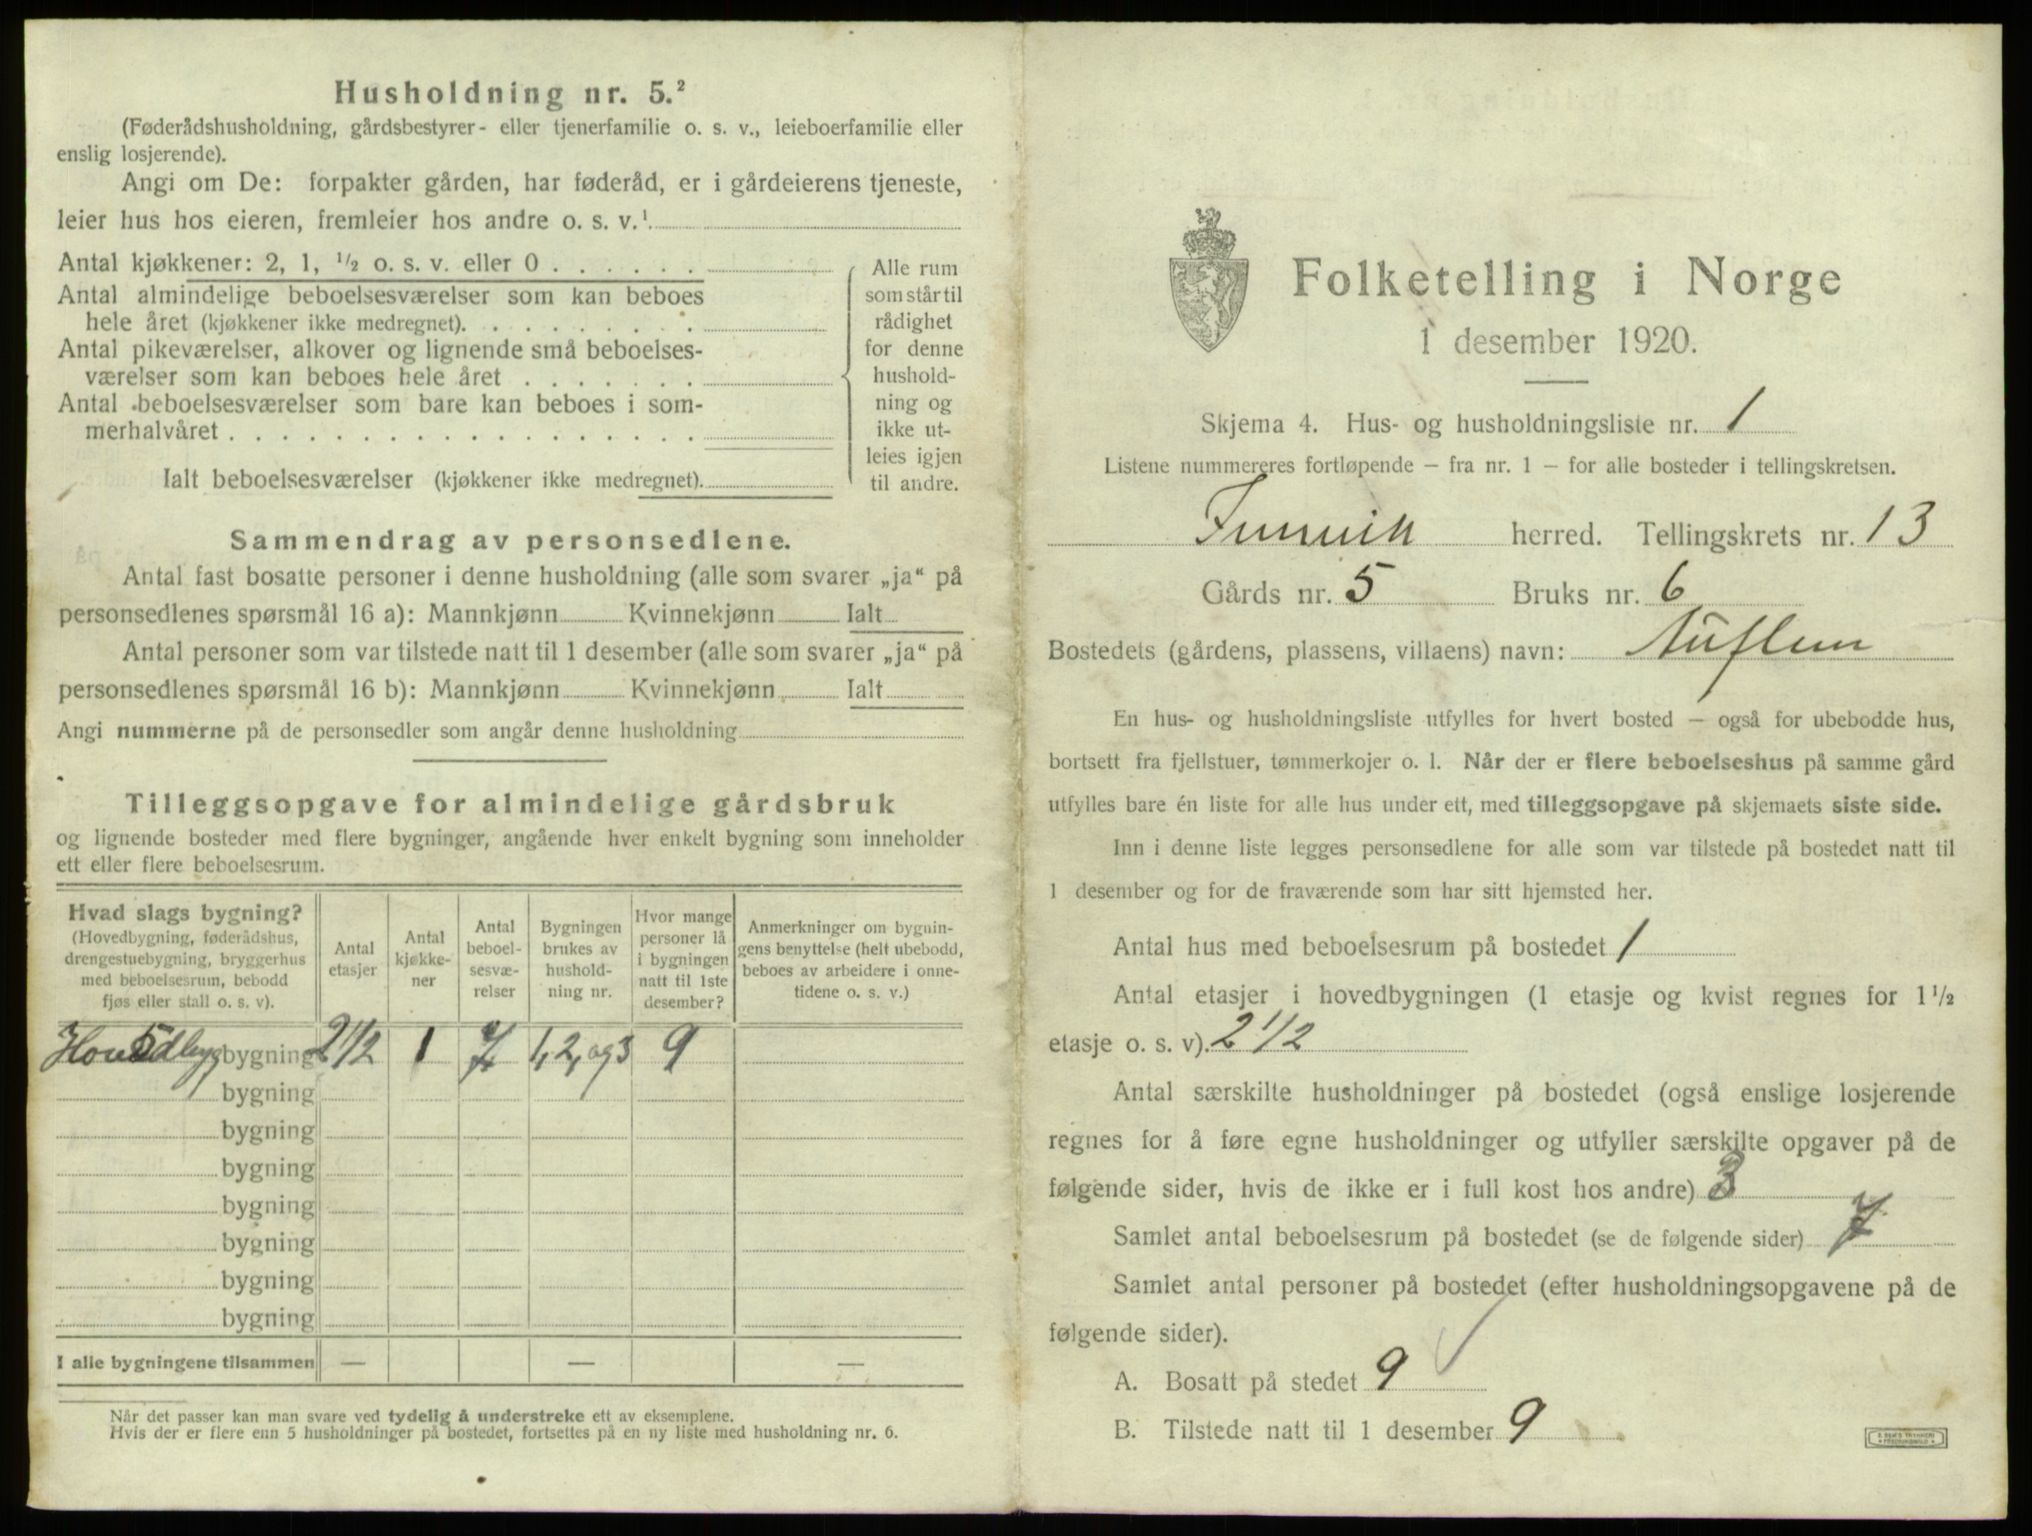 Husholdning nr. 5.²
(Føderådshusholdning, gårdsbestyrer- eller tjenerfamilie o. s. v., leieboerfamilie eller
enslig losjerende).
Angi om De: forpakter gården, har føderåd, er i gårdeierens tjeneste,
leier hus hos eieren, fremleier hos andre o. s. v.¹
Antal kjøkkener: 2, 1, ½ o. s. v. eller 0 . . . . . .
Antal almindelige beboelsesværelser som kan beboes
hele året (kjøkkener ikke medregnet). . . . . . . . .
Antal pikeværelser, alkover og lignende små beboelses-
værelser som kan beboes hele året . . . . . . .
Antal beboelsesværelser som bare kan beboes i som-
merhalvåret . . . . . . . . . . . . . . . . . .
Ialt beboelsesværelser (kjøkkener ikke medregnet).
Alle rum
som står til
rådighet
for denne
hushold-
ning og
ikke ut-
leies igjen
til andre.
Sammendrag av personsedlene.
Antal fast bosatte personer i denne husholdning (alle som svarer „ja“ på
personsedlenes spørsmål 16 a): Mannkjønn Kvinnekjønn Ialt
Antal personer som var tilstede natt til 1 desember (alle som svarer „ja“ på
personsedlenes spørsmål 16 b): Mannkjønn Kvinnekjønn Ialt
Angi nummerne på de personsedler som angår denne husholdning
Tilleggsopgave for almindelige gårdsbruk
og lignende bosteder med flere bygninger, angående hver enkelt bygning som inneholder
ett eller flere beboelsesrum.
Hvad slags bygning?
(Hovedbygning, føderådshus,
drengestuebygning, bryggerhus
med beboelsesrum, bebodd
fjøs eller stall o. s. v).
Antal
etasjer
Antal
kjøkke-
ner
Antal
beboel-
sesvæ-
relser
Bygningen
brukes av
hushold-
ning nr.
Hvor mange
personer lå
i bygningen
natt til 1ste
desember?
Anmerkninger om bygnin-
gens benyttelse (helt ubebodd,
beboes av arbeidere i onne-
tidene o. s. v.)
bygning 2 1/2 1 7 1, 2, og 3 9
bygning
bygning
bygning
bygning
bygning
bygning
bygning
I alle bygningene tilsammen — — —
Når det passer kan man svare ved tydelig å understreke ett av eksemplene.
Hvis der er flere enn 5 husholdninger på bostedet, fortsettes på en ny liste med husholdning nr. 6.
Folketelling i Norge
1 desember 1920.
Skjema 4. Hus- og husholdningsliste nr. 1
Listene nummereres fortløpende – fra nr. 1 – for alle bosteder i tellingskretsen.
Innvik herred. Tellingskrets nr. 13
Gårds nr. 5 Bruks nr. 6
Bostedets (gårdens, plassens, villaens) navn: Auflem
En hus- og husholdningsliste utfylles for hvert bosted – også for ubebodde hus,
bortsett fra fjellstuer, tømmerkojer o. l. Når der er flere beboelseshus på samme gård
utfylles bare én liste for alle hus under ett, med tilleggsopgave på skjemaets siste side.
Inn i denne liste legges personsedlene for alle som var tilstede på bostedet natt til
1 desember og for de fraværende som har sitt hjemsted her.
Antal hus med beboelsesrum på bostedet 1
Antal etasjer i hovedbygningen (1 etasje og kvist regnes for 1½
etasje o. s. v). 2 1/2
Antal særskilte husholdninger på bostedet (også enslige losjerende
regnes for å føre egne husholdninger og utfyller særskilte opgaver på de
følgende sider, hvis de ikke er i full kost hos andre) 3
Samlet antal beboelsesrum på bostedet (se de følgende sider) 7
Samlet antal personer på bostedet (efter husholdningsopgavene på de
følgende sider).
A. Bosatt på stedet 9
B. Tilstede natt til 1 desember 9